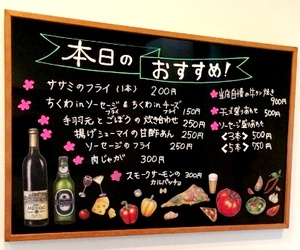 本日の
おすすめ!
ササミのフライ(1本) 200円
ちくわinソーセージ&ちくわinチーズ
フライ フライ 150円
手羽元とごぼうの炊き合わせ 250円
揚げシューマイの甘酢あん 250円
ソーセージのフライ 250円
肉じゃが 300円
スモークサーモンの
カルパッチョ 300円
当店自慢の牛タン焼き
900円
天ぷら盛り合わせ 500円
ソーセージ盛り合わせ
<3本> 500円
<5本> 750円